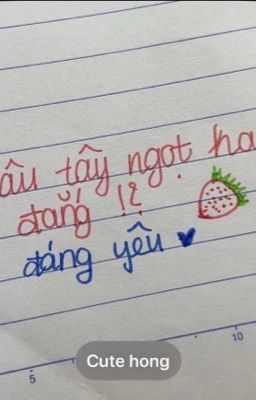 âu tây ngọt ha
đắng !?
đáng yêu
10
Cute hong
5